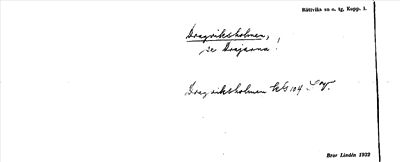 Rättviks sn o. tg, Kopp. l.
Dragviksholmen,
se Drajarna!
Dragviksholmen
Bror Lindén 1932